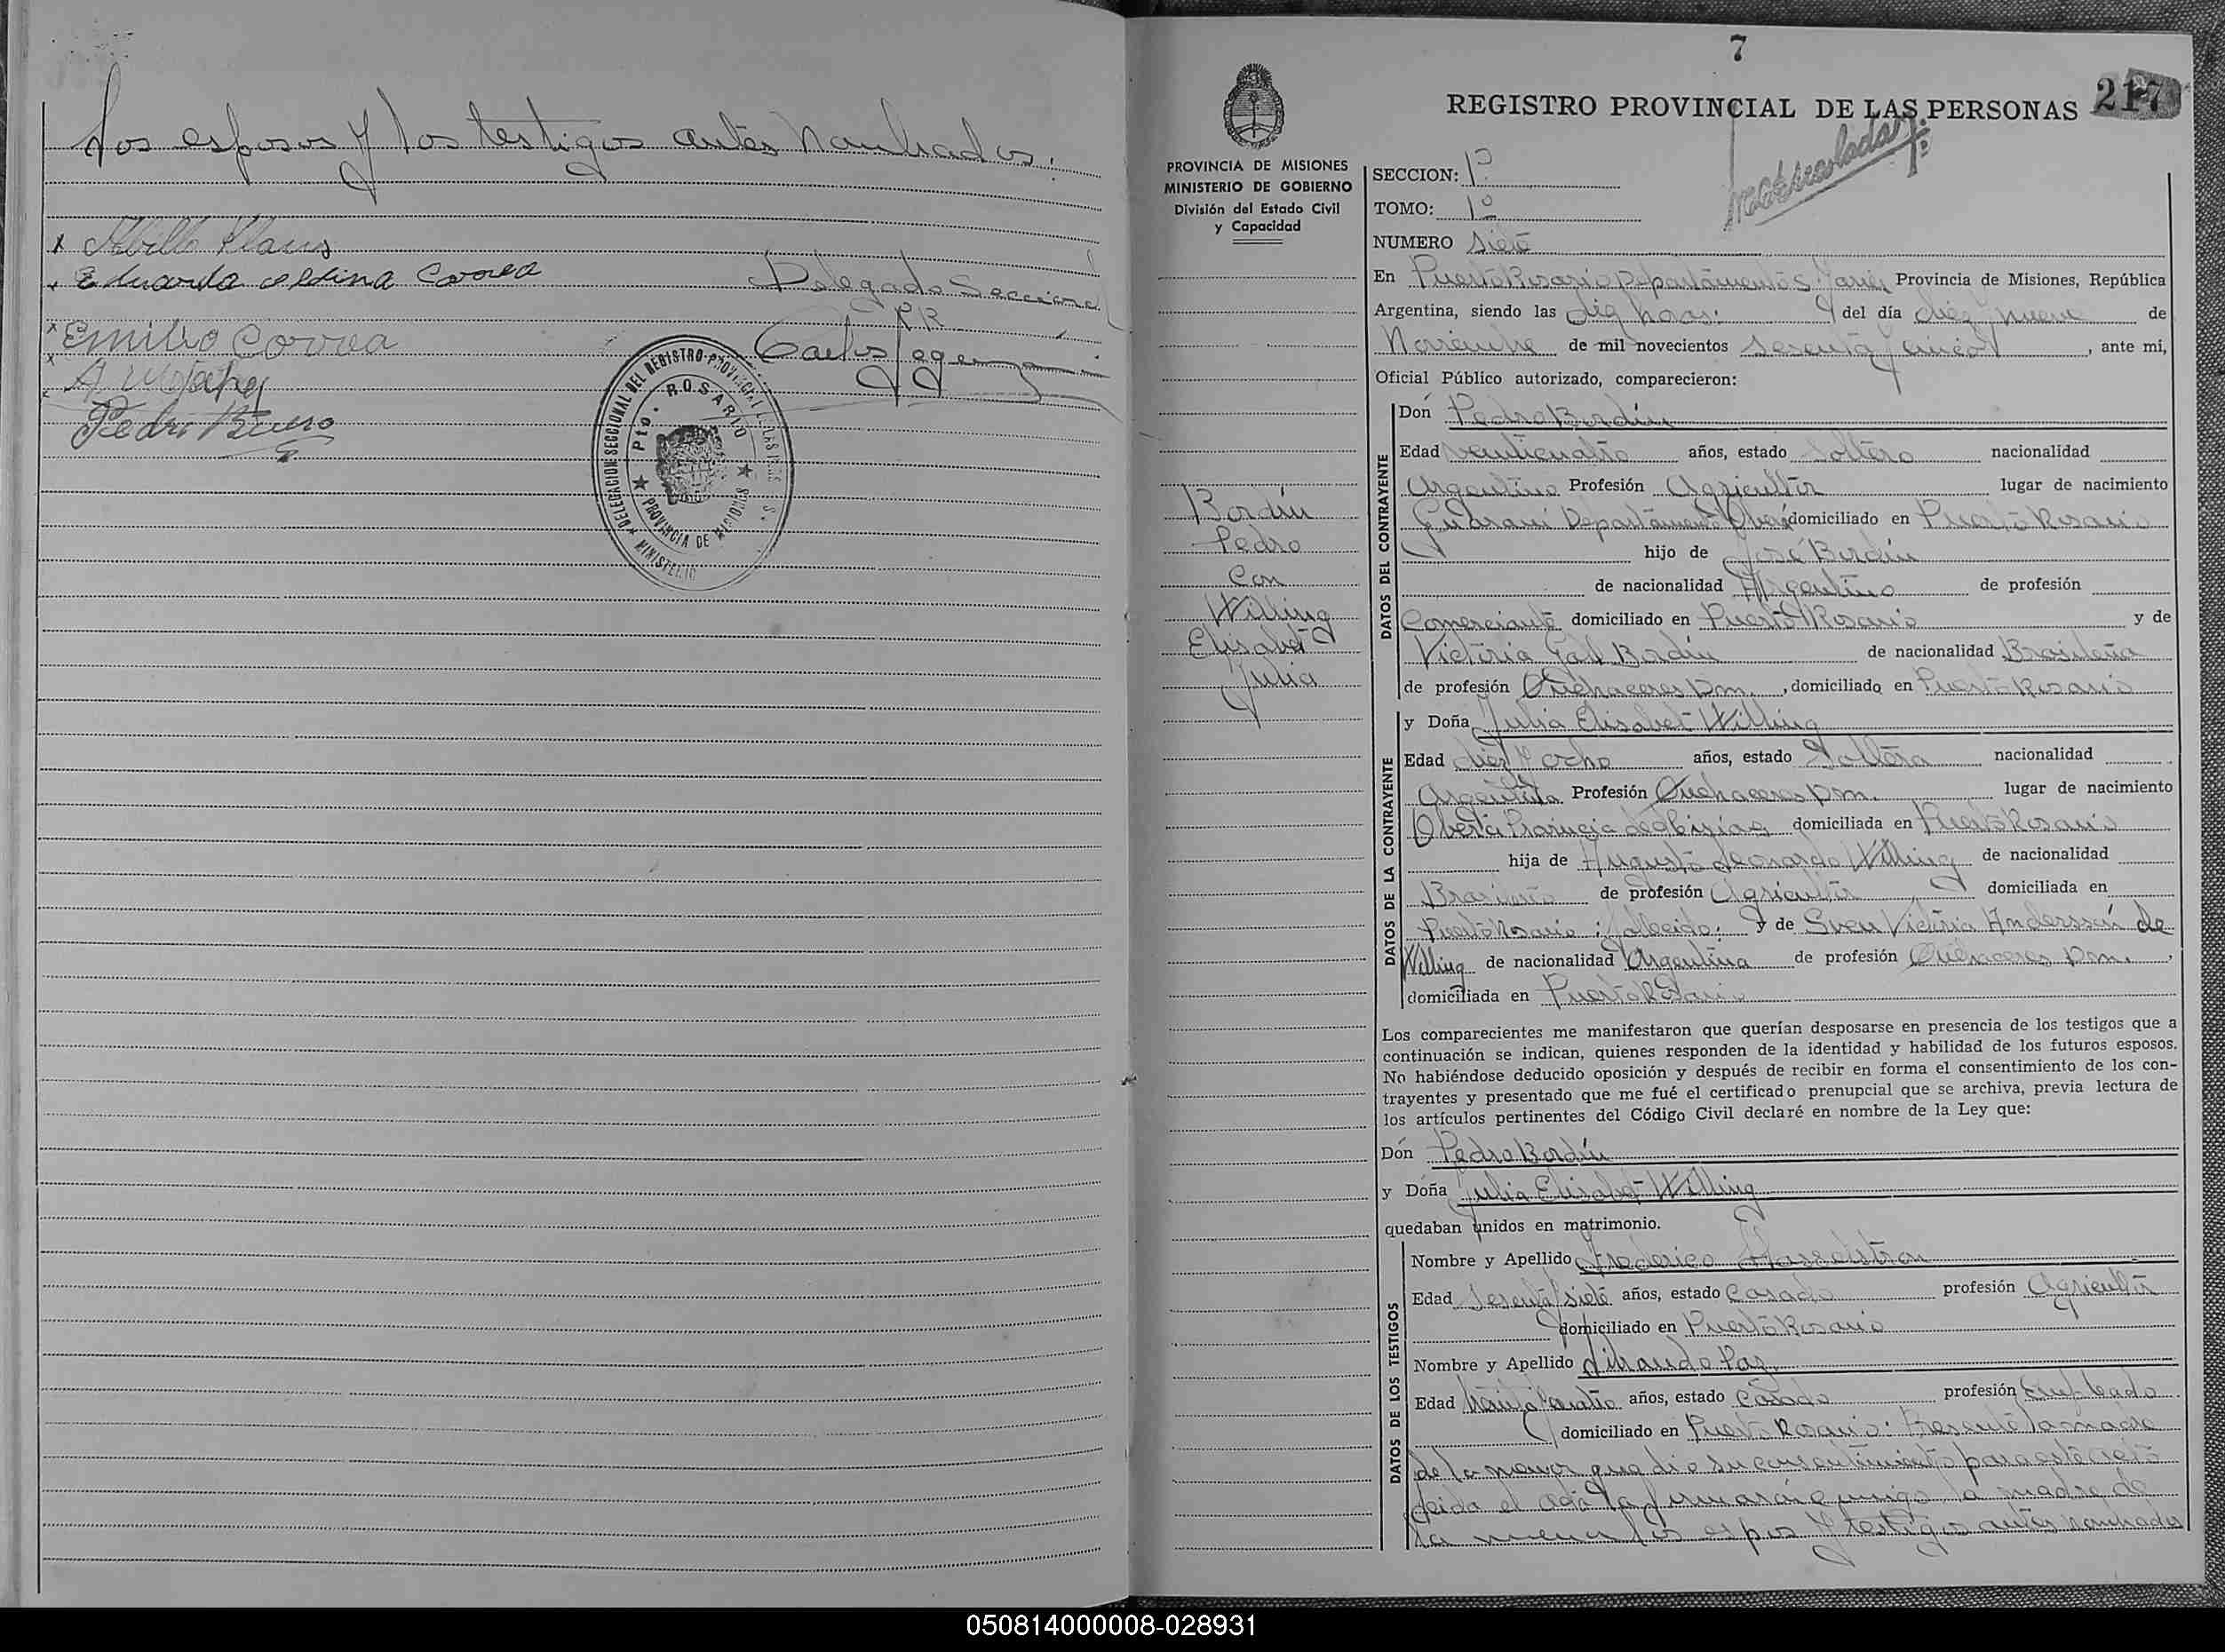 Los esposos y los testigos antes nombrados.
x Abillo Klaus
x Eduarda Celina Correa
Delegado Seccional
P R
x Emilio Correa
Carlos
Pedro Bueno
DELEGACION SECCIONAL DEL REGISTRO PROVINCIAL DE LAS PERSONAS
Pto. ROSARIO
PROVINCIA DE MISIONES
MINISTERIO
7
REGISTRO PROVINCIAL DE LAS PERSONAS 217
PROVINCIA DE MISIONES
MINISTERIO DE GOBIERNO
División del Estado Civil
y Capacidad
SECCION: 1ª
TOMO: 1º
NUMERO Siete
En Puerto Rosario Departamento S. Javier Provincia de Misiones, República
Argentina, siendo las diez horas. del día diez y nueve de
Noviembre de mil novecientos sesenta y cinco, ante mi,
Oficial Público autorizado, comparecieron:
Bordín
Pedro
Con
Willing
Elisabet
Julia
DATOS DEL CONTRAYENTE
Don Pedro Bordín
Edad veinticuatro años, estado Soltero nacionalidad
Argentino Profesión Agricultor lugar de nacimiento
Guaraní Departamento Oberá domiciliado en Puerto Rosario
hijo de José Bordín
de nacionalidad Argentino de profesión
Comerciante domiciliado en Puerto Rosario y de
Victoria Gall Bordín de nacionalidad Brasileña
de profesión Quehaceres Dom., domiciliado en Puerto Rosario
DATOS DE LA CONTRAYENTE
y Doña Julia Elisabet Willing
Edad diez y ocho años, estado Soltera nacionalidad
Argentina Profesión Quehaceres Dom. lugar de nacimiento
Oberá Provincia de Misiones domiciliada en Puerto Rosario
hija de Augusto Leonardo Willing de nacionalidad
Brasilero de profesión Agricultor domiciliada en
Puerto Rosario; fallecido; y de Svea Victoria Anderssón de
Willing de nacionalidad Argentina de profesión Quehaceres Dom.,
domiciliada en Puerto Rosario
Los comparecientes me manifestaron que querían desposarse en presencia de los testigos que a
continuación se indican, quienes responden de la identidad y habilidad de los futuros esposos.
No habiéndose deducido oposición y después de recibir en forma el consentimiento de los con-
trayentes y presentado que me fué el certificado prenupcial que se archiva, previa lectura de
los artículos pertinentes del Código Civil declaré en nombre de la Ley que:
Dón Pedro Bordín
y Doña Julia Elisabet Willing
quedaban unidos en matrimonio.
DATOS DE LOS TESTIGOS
Nombre y Apellido Frederico
Edad Sesenta y siete años, estado Casado profesión Agricultor
domiciliado en Puerto Rosario
Nombre y Apellido Paz
Edad treinta y cuatro años, estado Casado profesión Empleado
domiciliado en Puerto Rosario: Presente la madre
de la menor que dio su consentimiento para este acto
Leida el acta la firmaron conmigo la madre de
la menor los esposos y testigos antes nombrados
050814000008-028931